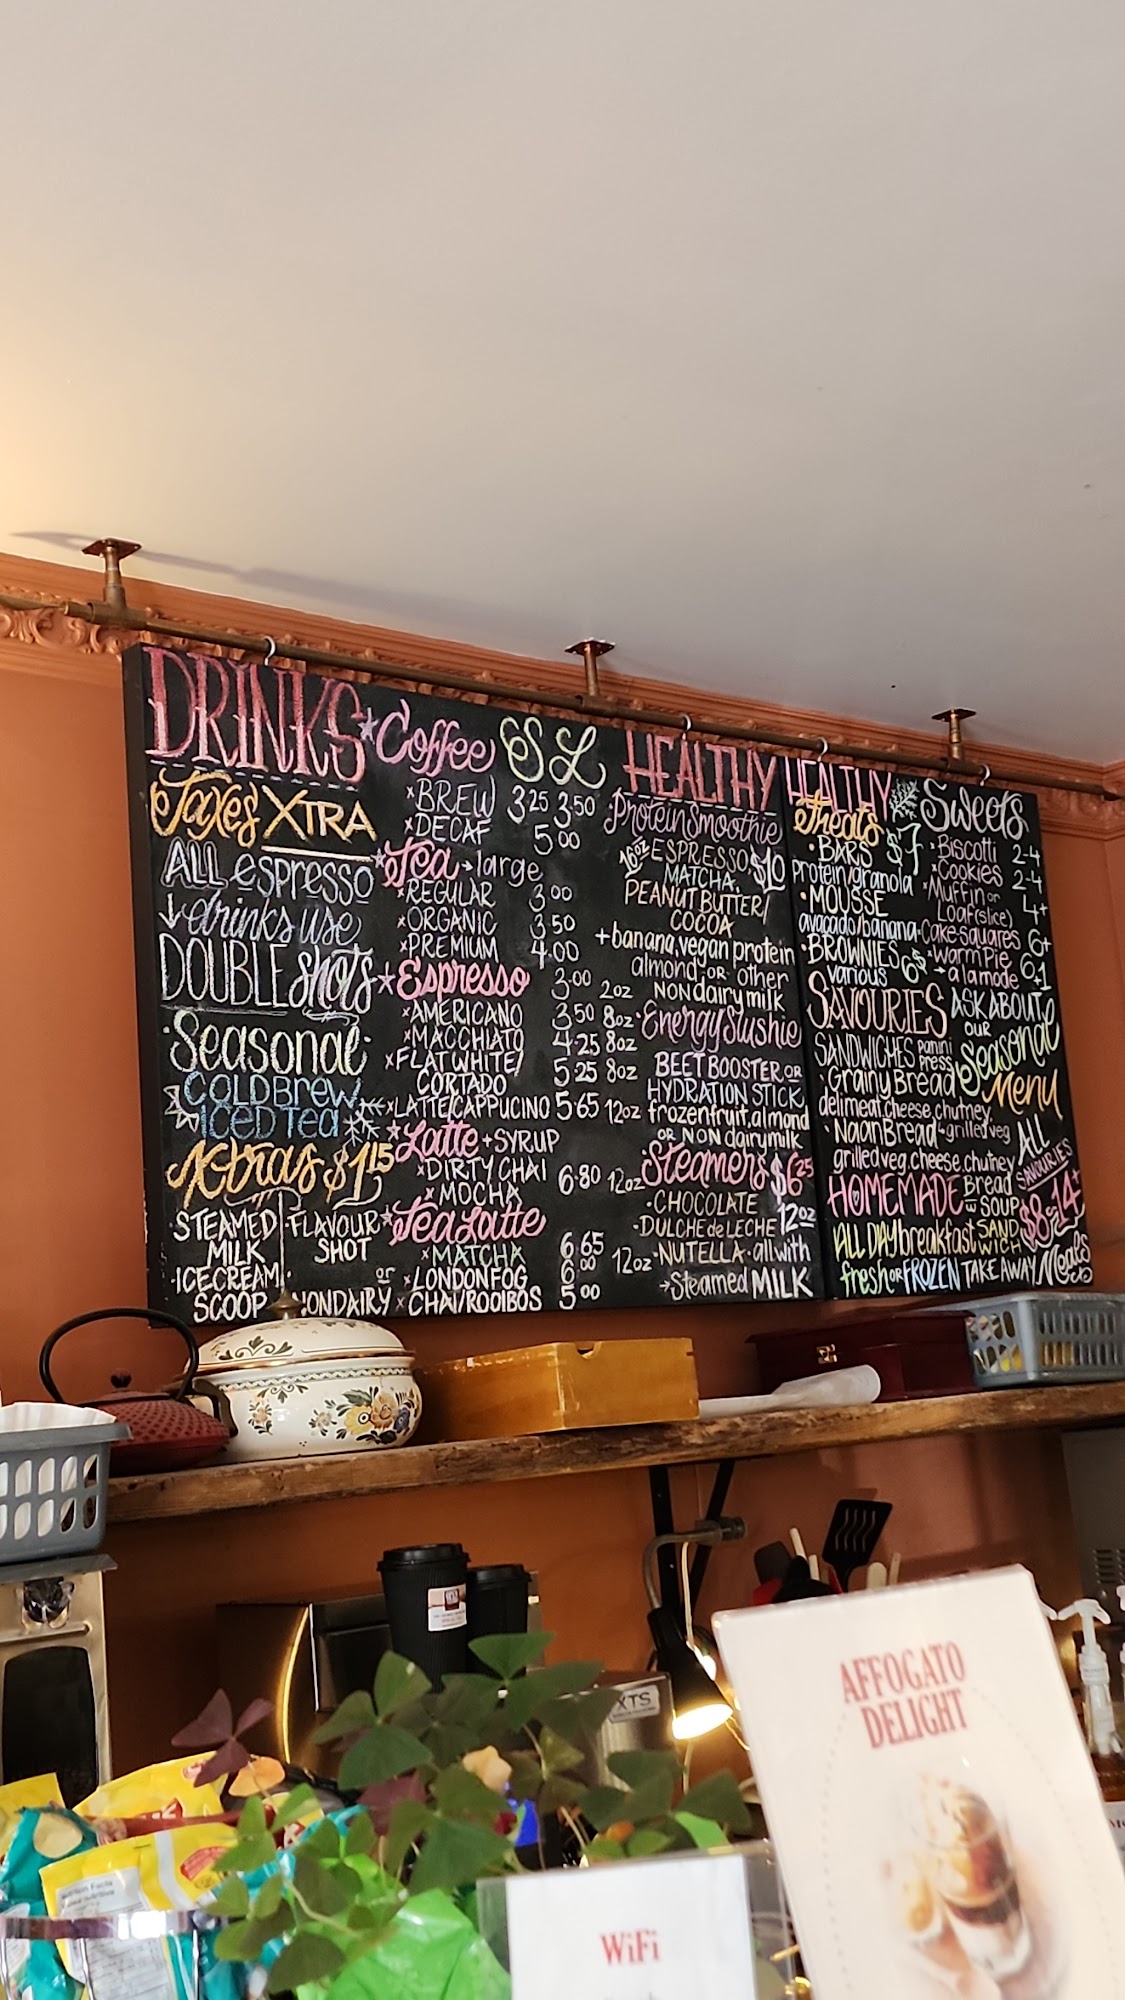 DRINKS
Taxes XTRA
ALL espresso
↓ drinks use
DOUBLE shots
·Seasonal·
COLD BREW
ICED Tea
Xtras $1.15
STEAMED MILK
FLAVOUR SHOT
·ICECREAM SCOOP
or NONDAIRY
*Coffee S L
×BREW 3.25 3.50
×DECAF 5.00
*Tea → large
×REGULAR 3.00
×ORGANIC 3.50
×PREMIUM 4.00
*Espresso 3.00 2oz
×AMERICANO 3.50 8oz
×MACCHIATO 4.25 8oz
×FLAT WHITE/
CORTADO 5.25 8oz
×LATTE/CAPPUCINO 5.65 12oz
*Latte + SYRUP
×DIRTY CHAI
×MOCHA 6.80 12oz
*Tea Latte
×MATCHA 6.65
×LONDON FOG 6.00 12oz
×CHAI/ROOIBOS 5.00
HEALTHY
Protein Smoothie
16oz ESPRESSO, $10
MATCHA,
PEANUT BUTTER/
COCOA
+banana, vegan protein
almond, or other
NON dairy milk
·Energy Slushie
BEET BOOSTER OR
HYDRATION STICK,
frozen fruit, almond
OR NON dairy milk
Steamers $6.25
·CHOCOLATE 12oz
·DULCHE de LECHE
·NUTELLA· all with
→Steamed MILK
HEALTHY
Treats $7
·BARS
protein/granola
·MOUSSE
avacado/banana
·BROWNIES 6$
various
SAVOURIES
SANDWICHES panini press
·Grainy Bread
deli meat, cheese, chutney,
·Naan Bread grilled veg
grilled veg, cheese, chutney
HOMEMADE Bread w SOUP
ALL DAY breakfast SANDWICH
fresh OR FROZEN TAKE AWAY Meals
Sweets
·Biscotti 2-4
·Cookies 2-4
·Muffin or
Loaf (slice) 4+
·Cake squares 6+
·warm Pie 6
→ a la mode +1
ASK ABOUT
OUR
Seasonal
Menu
ALL
SAVOURIES
$8-14+
XTS
AFFOGATO
DELIGHT
WiFi